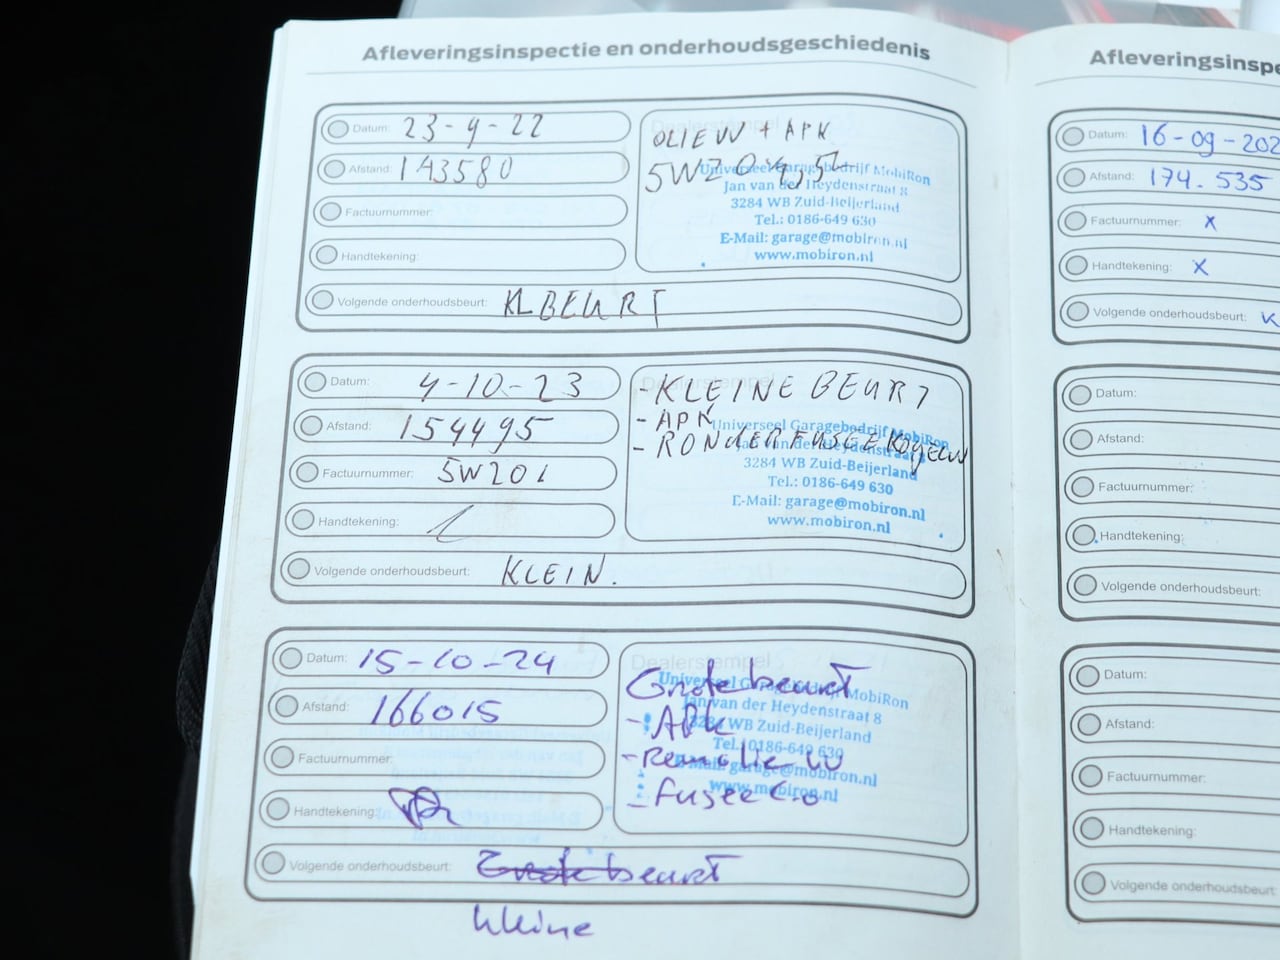 Afleveringsinspectie en onderhoudsgeschiedenis
Datum: 23-4-22
Afstand: 143580
Factuurnummer:
Handtekening:
Volgende onderhoudsbeurt: KLBEURT
Dealerstempel
OLIEVV + APK
5W20 4,5L
Universeel Garagebedrijf MobiRon
Jan van der Heydenstraat 8
3284 WB Zuid-Beijerland
Tel.: 0186-649 630
E-Mail: garage@mobiron.nl
www.mobiron.nl
Datum: 4-10-23
Afstand: 154495
Factuurnummer: 5W20L
Handtekening:
Volgende onderhoudsbeurt: KLEIN.
Dealerstempel
- KLEINE BEURT
- APK
- FUSEEKOGEL
Universeel Garagebedrijf MobiRon
Jan van der Heydenstraat 8
3284 WB Zuid-Beijerland
Tel.: 0186-649 630
E-Mail: garage@mobiron.nl
www.mobiron.nl
Datum: 15-10-24
Afstand: 166015
Factuurnummer:
Handtekening:
Volgende onderhoudsbeurt: Grote beurt
kleine
Dealerstempel
Grote beurt
- APK
- Remolie-VV
- fusee
Universeel Garagebedrijf MobiRon
Jan van der Heydenstraat 8
3284 WB Zuid-Beijerland
Tel.: 0186-649 630
E-Mail: garage@mobiron.nl
www.mobiron.nl
Afleveringsinspe
Datum: 16-09-202
Afstand: 174.535
Factuurnummer: x
Handtekening: x
Volgende onderhoudsbeurt: K
Datum:
Afstand:
Factuurnummer:
Handtekening:
Volgende onderhoudsbeurt:
Datum:
Afstand:
Factuurnummer:
Handtekening:
Volgende onderhoudsbeurt: